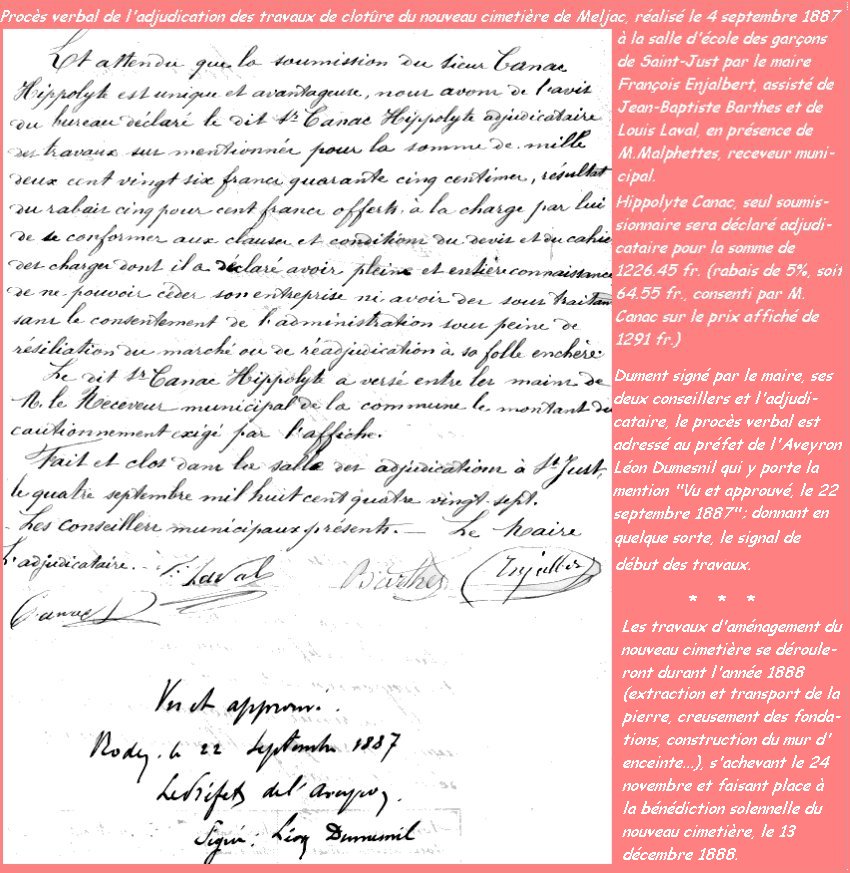 Procès verbal de l'adjudication des travaux de clotûre du nouveau cimetière de Meljac, réalisé le 4 septembre 1887
à la salle d'école des garçons
de Saint-Just par le maire
François Enjalbert, assisté de
Jean-Baptiste Barthes et de
Louis Laval, en présence de
M.Malphettes, receveur muni-
cipal.
Hippolyte Canac, seul soumis-
sionnaire sera déclaré adjudi-
cataire pour la somme de
1226.45 fr. (rabais de 5%, soit
64.55 fr., consenti par M.
Canac sur le prix affiché de
1291 fr.)
Dument signé par le maire, ses
deux conseillers et l'adjudi-
cataire, le procès verbal est
adressé au préfet de l'Aveyron
Léon Dumesnil qui y porte la
mention "Vu et approuvé, le 22
septembre 1887"; donnant en
quelque sorte, le signal de
début des travaux.
* * *
Les travaux d'aménagement du
nouveau cimetière se déroule-
ront durant l'année 1888
(extraction et transport de la
pierre, creusement des fonda-
tions, construction du mur d'
enceinte...), s'achevant le 24
novembre et faisant place à
la bénédiction solennelle du
nouveau cimetière, le 13
décembre 1888.
Et attendu que la soumission du sieur Canac
Hippolyte est unique et avantageuse, nous avons de l'avis
du bureau déclaré le dit Sr Canac Hippolyte adjudicataire
des travaux sur mentionnés pour la somme de mille
deux cent vingt six francs quarante cinq centimes, résultat
du rabais cinq pour cent francs offerts, à la charge par lui
de se conformer aux clauses et conditions du devis et du cahier
des charges dont il a déclaré avoir pleine et entière connaissance
de ne pouvoir céder son entreprise ni avoir des sous traitan
sans le consentement de l'administration sous peine de
résiliation du marché ou de réadjudication à sa folle enchère.
Le dit Sr Canac Hippolyte a versé entre les mains de
M. le Receveur municipal de la commune le montant du
cautionnement exigé par l'affiche.
Fait et clos dans la salle des adjudications à St Just,
le quatre septembre mil huit cent quatre vingt-sept.
Les conseillers municipaux présents. — Le Maire
L'adjudicataire. Laval Barthes Enjalbert
Canac
Vu et approuvé.
Rodez, le 22 septembre 1887
Le Préfet de l'Aveyron,
Signé: Léon Dumesnil